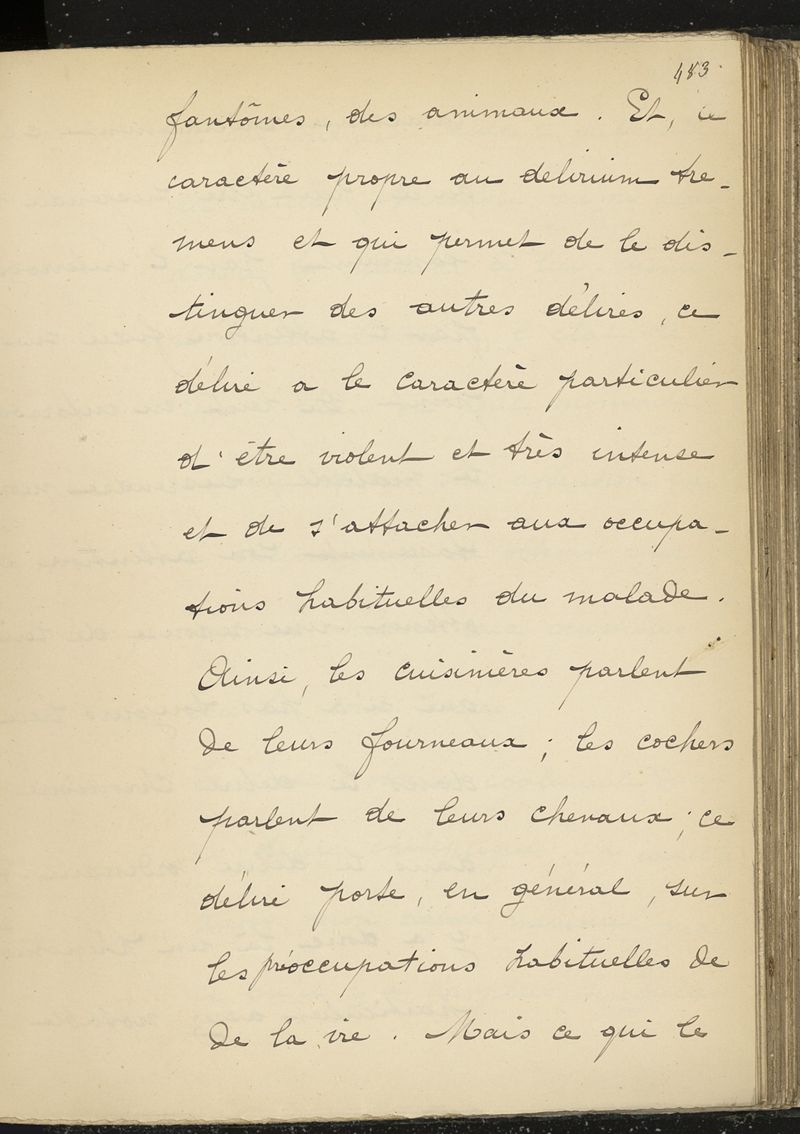 483
fantômes, des animaux. Et, ce
caractère propre au delirium tre-
mens et qui permet de le dis-
tinguer des autres délires, ce
délire a le caractère particulier
d'être violent et très intense
et de s'attacher aux occupa-
tions habituelles du malade.
Ainsi, les cuisinières parlent
de leurs fourneaux; les cochers
parlent de leurs chevaux; ce
délire porte, en général, sur
les préoccupations habituelles de
de la vie. Mais ce qui le